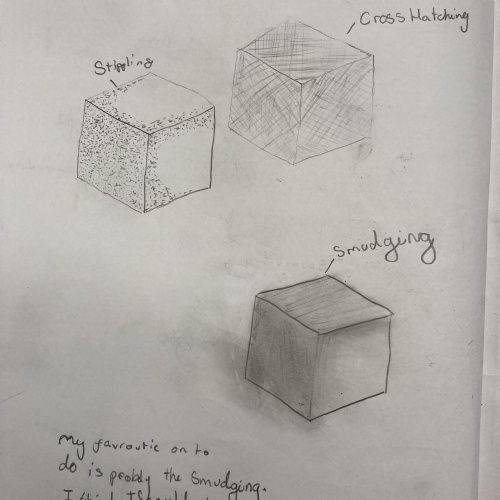 Cross Hatching
Stippling
Smudging
My favroutie on to
do is probly the Smudging.
I think I